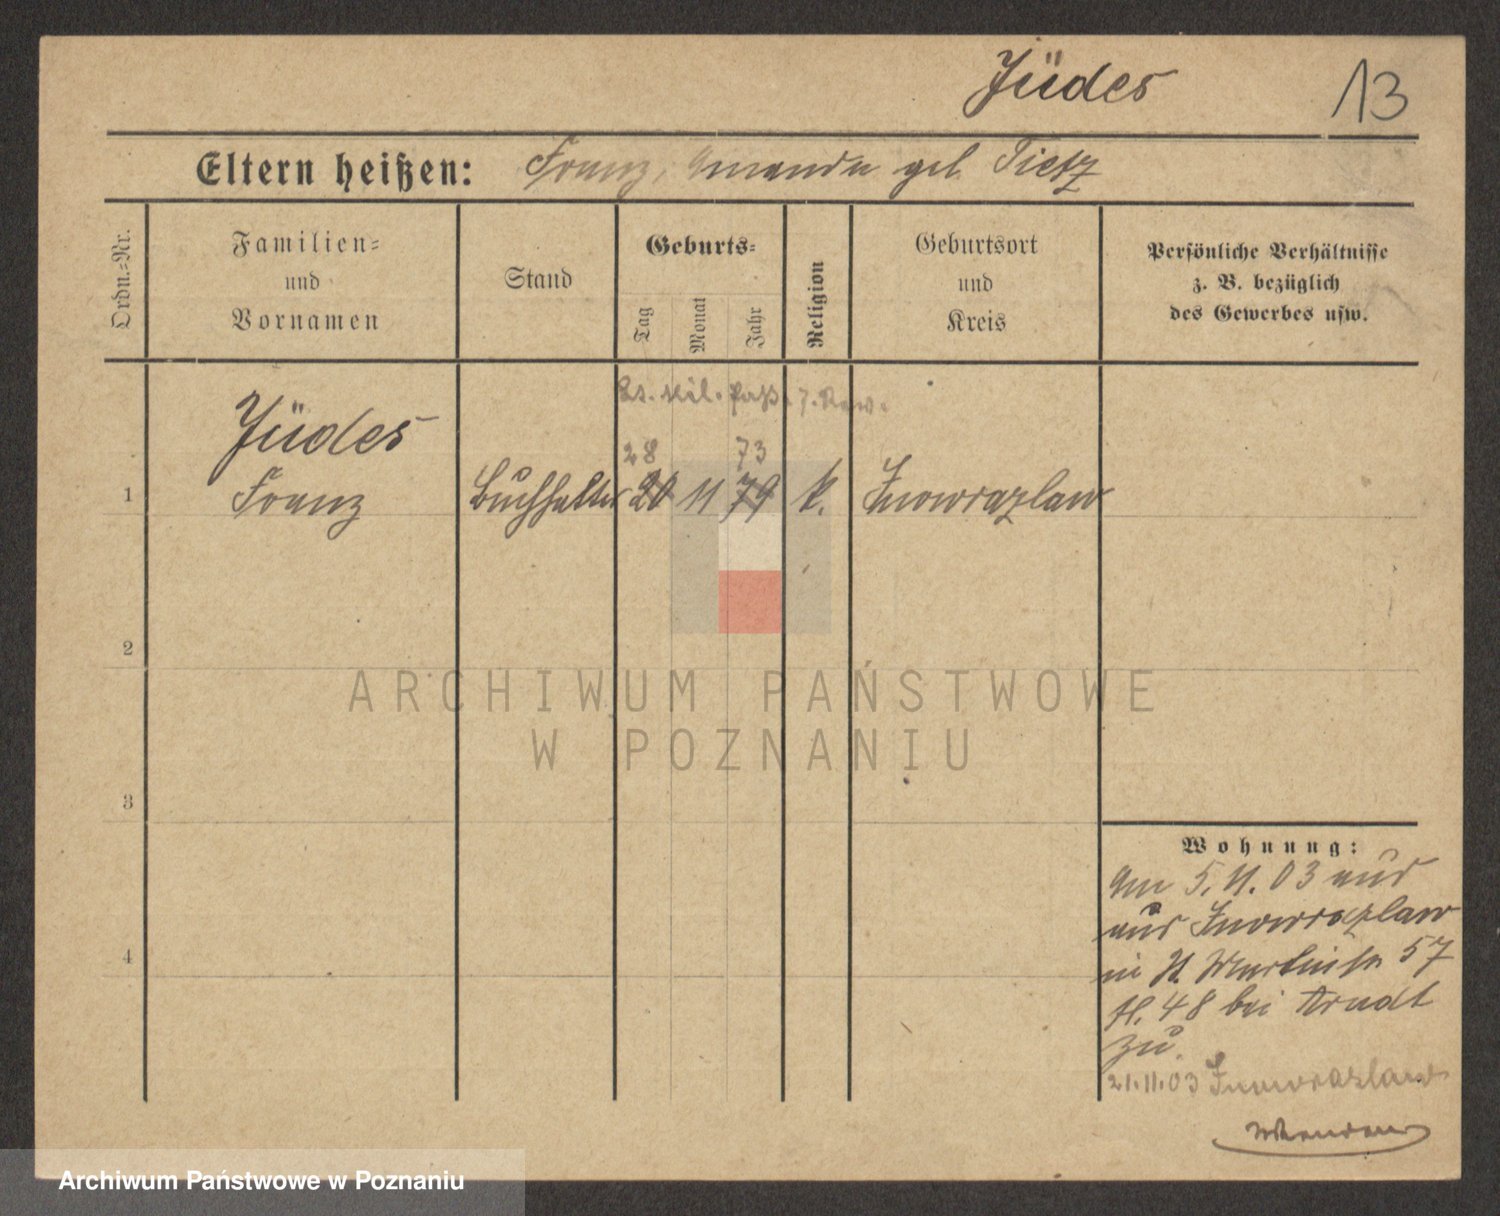 Jüdes
13
Eltern heißen: Franz, Amanda geb. Tietz
Ordn.-Nr.
Familien-
und
Vornamen
Stand
Geburts-
Tag
Monat
Jahr
Religion
Geburtsort
und
Kreis
Persönliche Verhältnisse
z. B. bezüglich
des Gewerbes usw.
Lt. Mil. Paß.
Jüdes
28 73
1 Franz Buchhalter 20 11 79 k. Inowrazlaw
2
3
4
ARCHIWUM PAŃSTWOWE
W POZNANIU
Wohnung:
Am 5.11.03
aus Inowrazlaw
in St. Martinstr 57
bei Arndt
zu.
21.11.03 Inowrazlaw
Archiwum Państwowe w Poznaniu